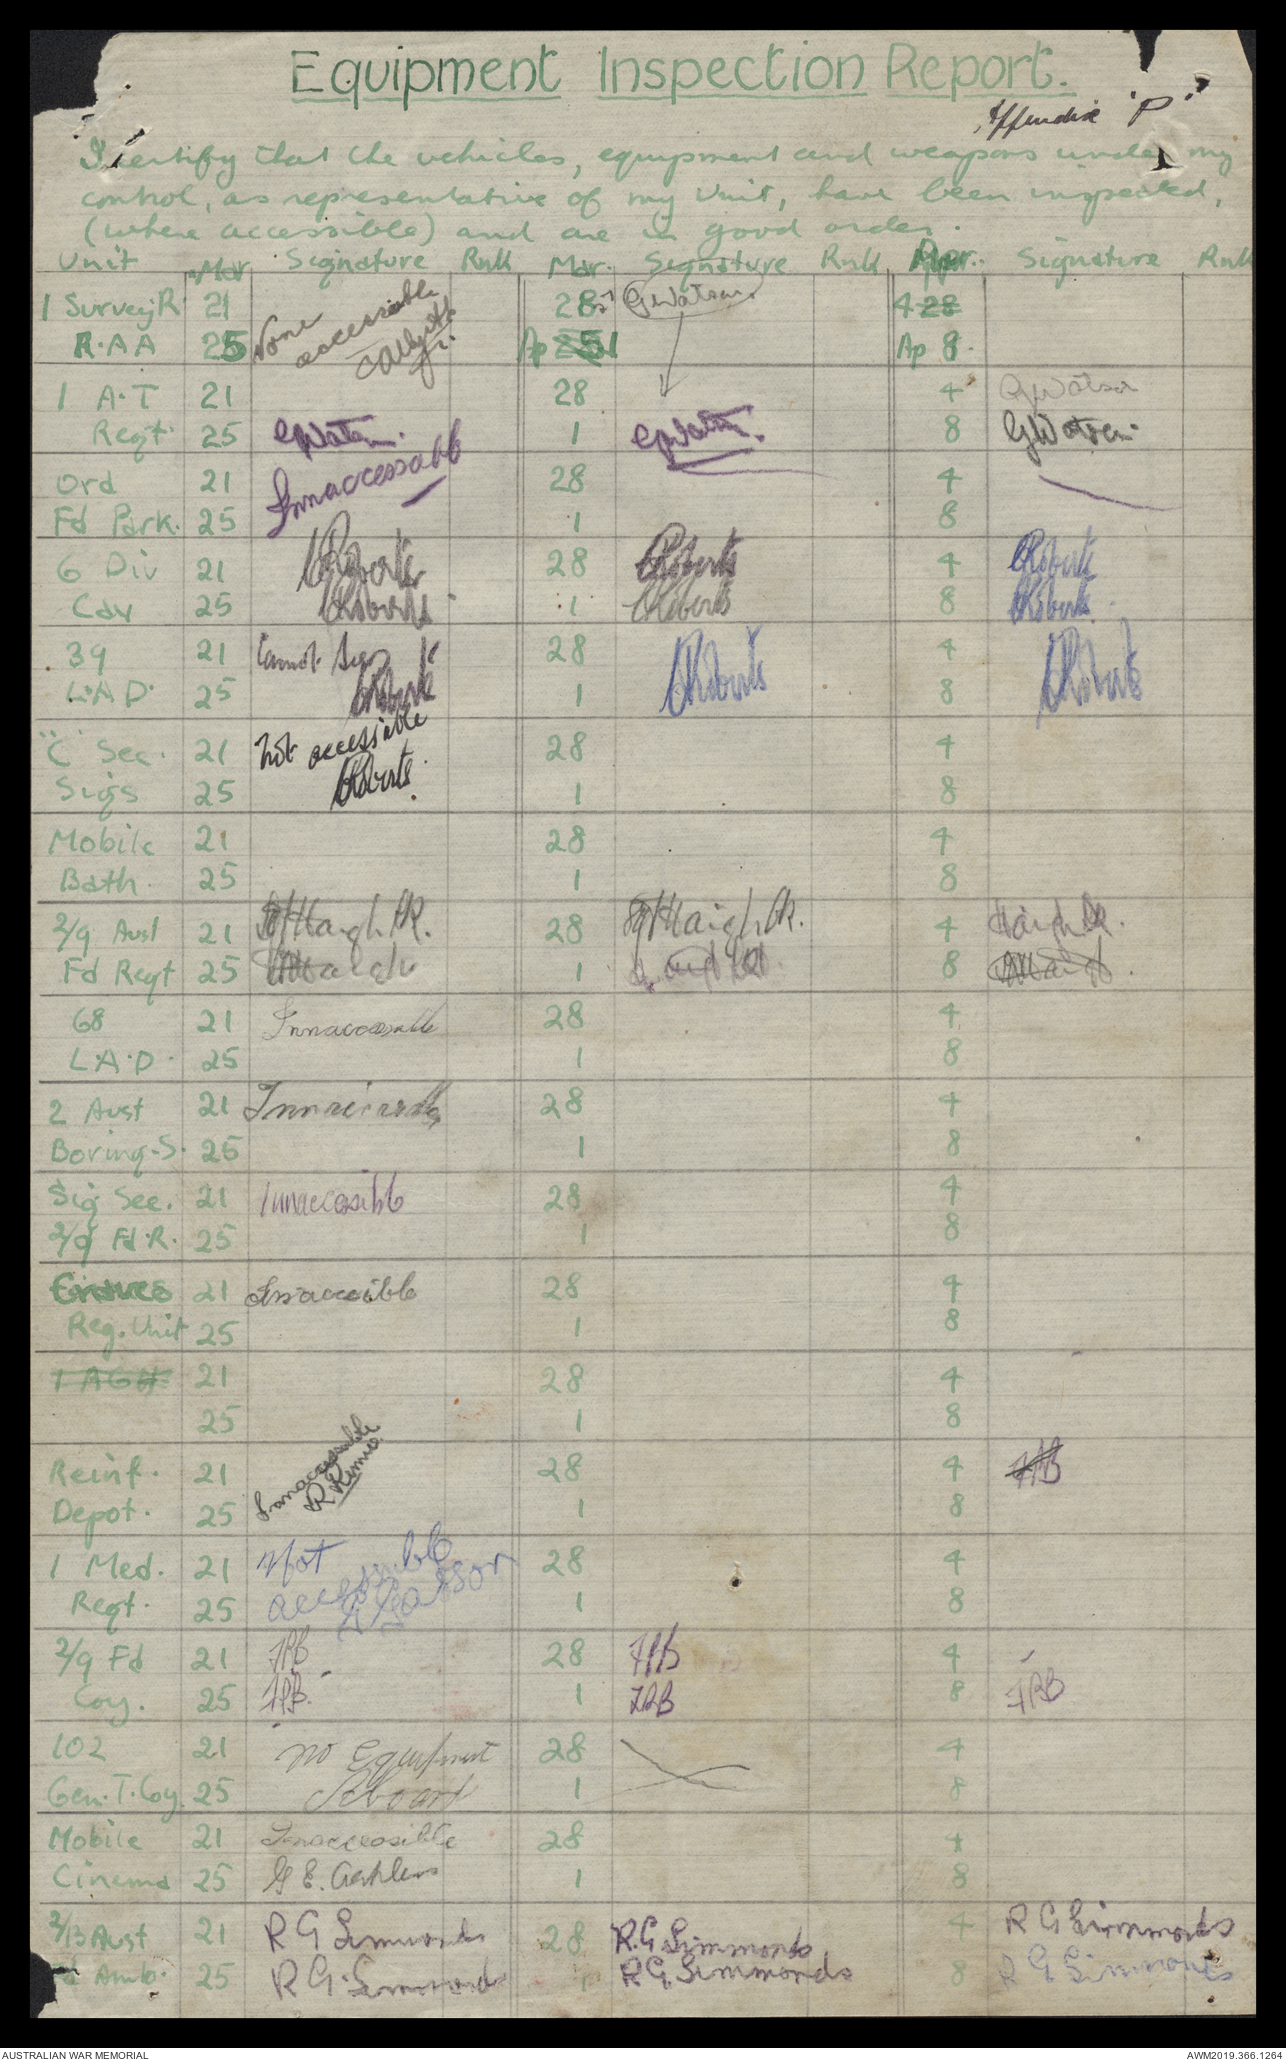 Equipment Inspection Report.
Appendix 'P'
I certify that the vehicles, equipment and weapons under my
control, as representative of my Unit, have been inspected,
(where accessible) and are in good order.
Unit Mar Signature Rnk Mar. Signature Rnk Apr. Signature Rnk
1 Survey R 21 None accessible 28 G Watson. 4 28
R.A.A 25 Ap 1 Ap 8.
1 A.T 21 28 4 G Watson
Regt. 25 G Watson. 1 G Watson. 8 G Watson.
Ord 21 Innaccessable 28 4
Fd Park. 25 1 8
6 Div 21 Roberts 28 Roberts 4 Roberts
Cav 25 Roberts 1 Roberts 8 Roberts
39 21 Cannot Sign 28 Roberts 4 Roberts
L.A.D. 25 Roberts 1 8
"C" Sec. 21 Not accessible 28 4
Sigs 25 Roberts 1 8
Mobile 21 28 4
Bath. 25 1 8
2/9 Aust 21 Haigh 28 Haigh 4 Haigh
Fd Regt 25 Haigh 1 8 Haigh
68 21 Innacessable 28 4
L.A.D. 25 1 8
2 Aust 21 28 4
Boring-S. 25 1 8
Sig Sec. 21 Innaccesible 28 4
2/9 Fd.R. 25 1 8
Graves 21 Innaccesible 28 4
Reg. Unit 25 1 8
1 AGH 21 28 4
25 1 8
Reinf. 21 Innaccessable 28 4 FRB
Depot. 25 1 8
1 Med. 21 Not 28 4
Regt. 25 accessible 1 8
2/9 Fd 21 FRB 28 FRB 4
Coy. 25 FRB. 1 FRB 8 FRB
102 21 No Equipment 28 4
Gen.T.Coy. 25 1 8
Mobile 21 Inaccessible 28 4
Cinema 25 1 8
2/13 Aust 21 R G Simmonds 28 R.G Simmonds 4 R G Simmonds
Fd Amb. 25 R G. Simmonds 1 R G Simmonds 8 R G Simmonds
AUSTRALIAN WAR MEMORIAL AWM2019.366.1264